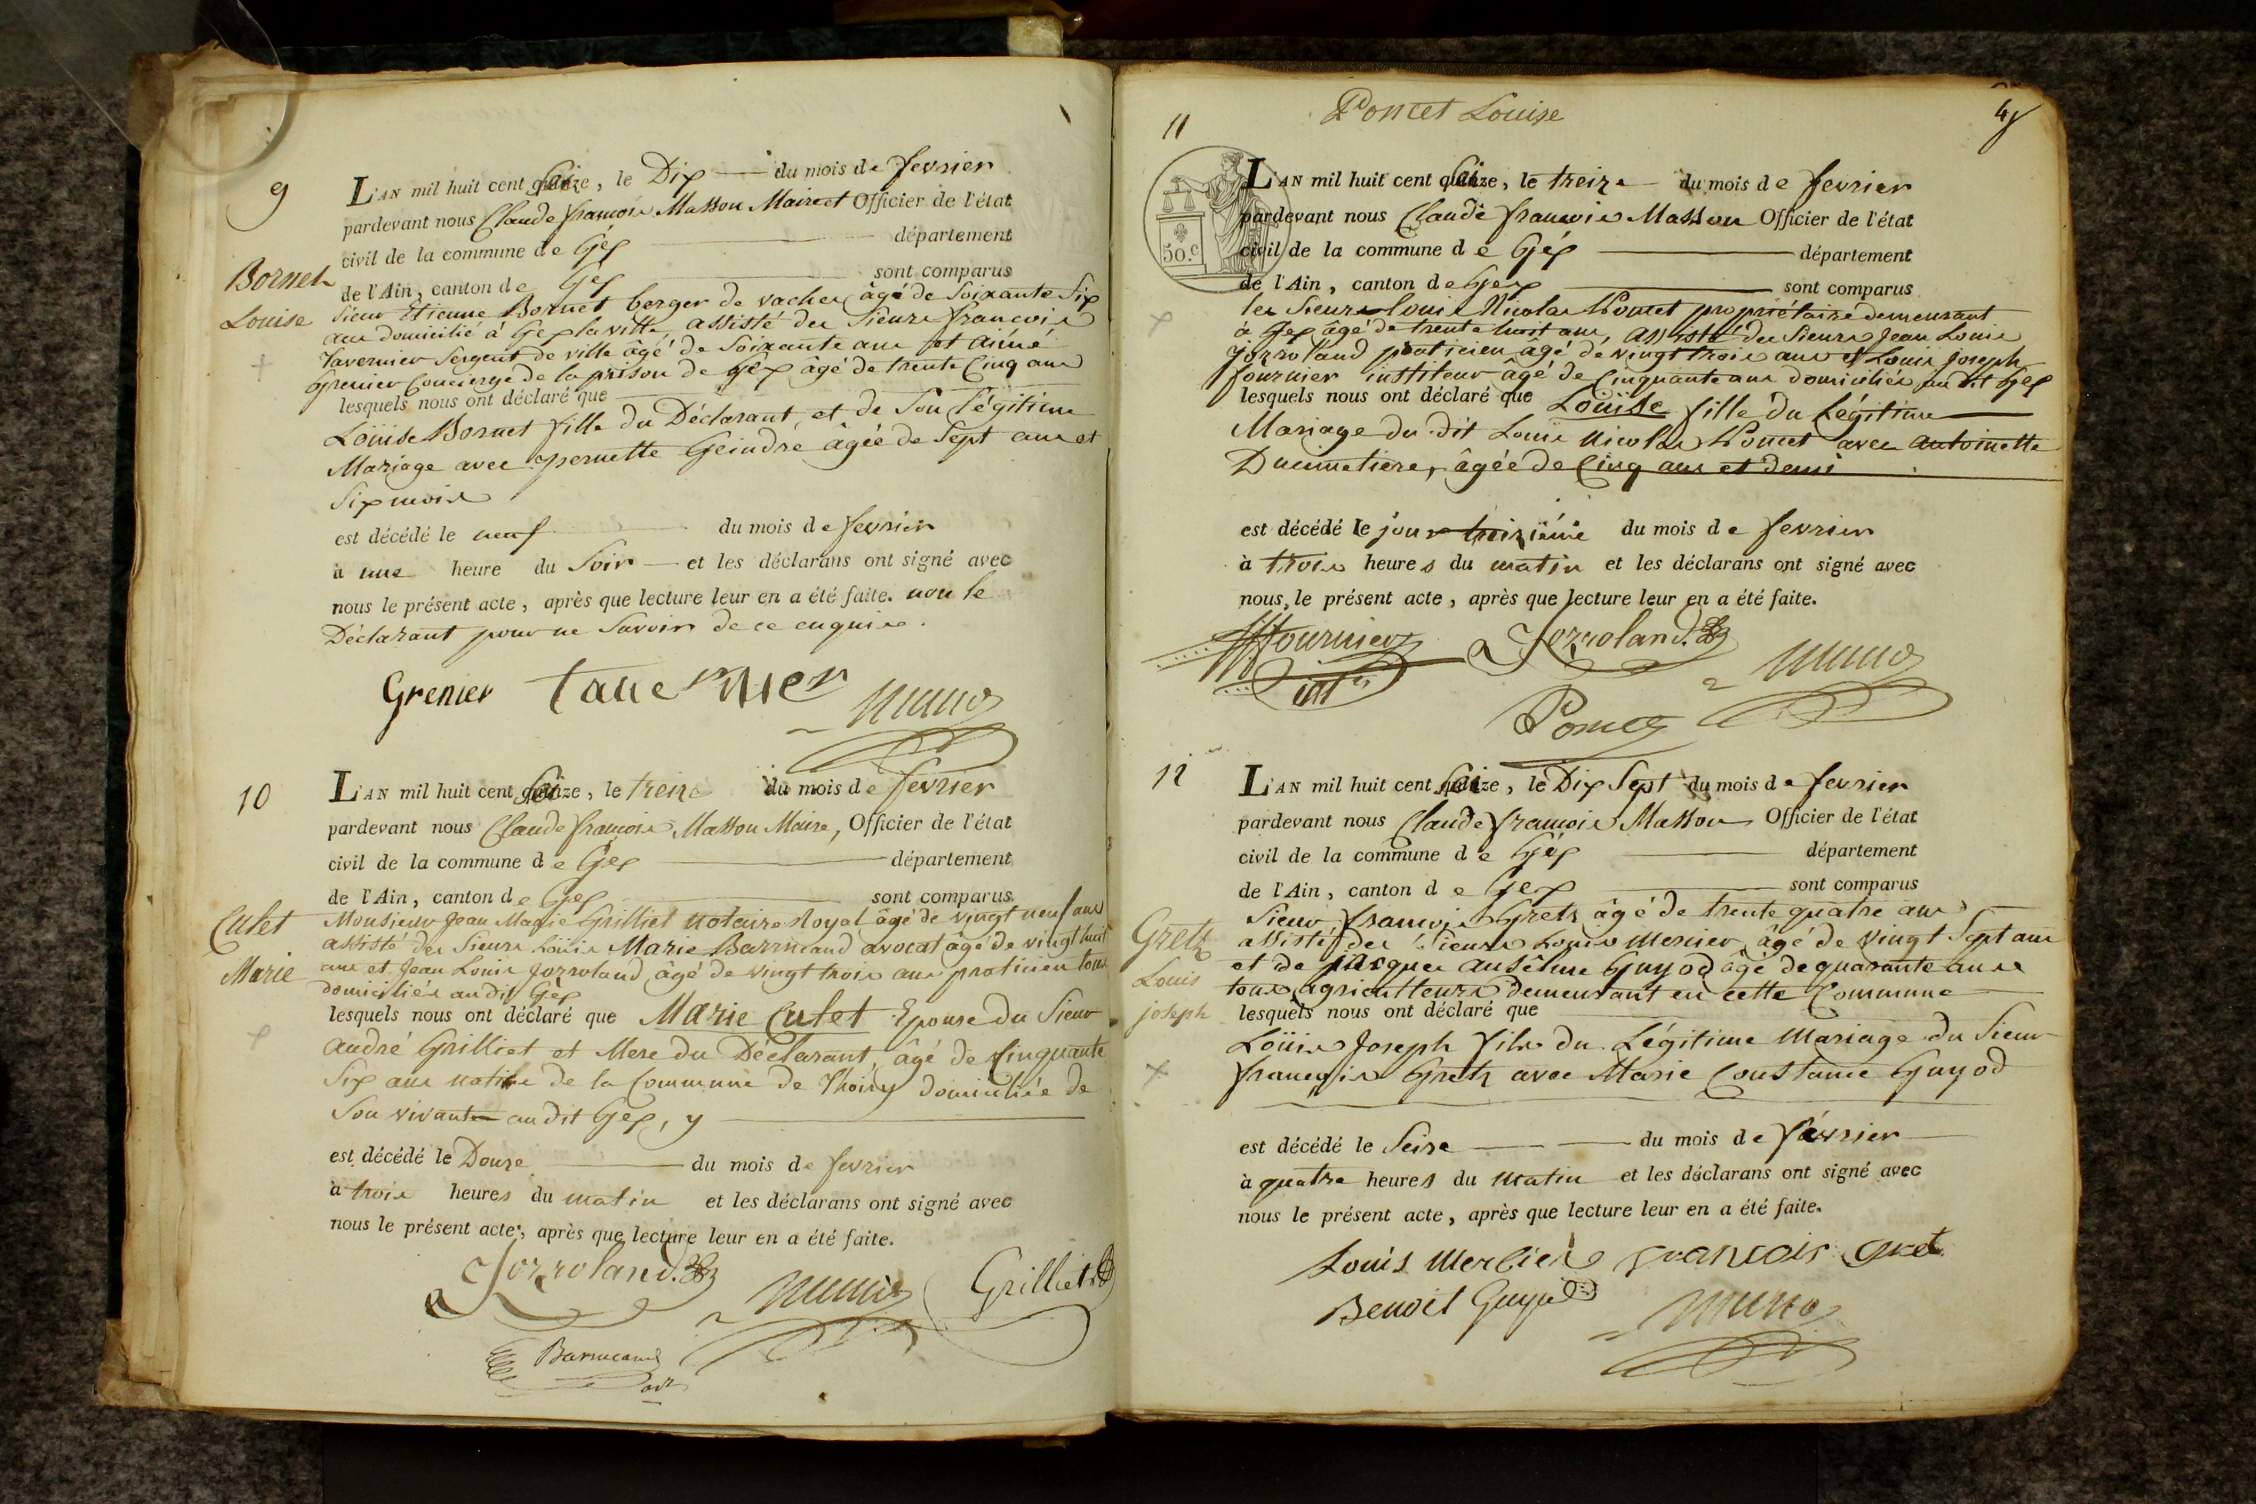 9
L'AN mil huit cent seize, le Dix du mois de fevrier
pardevant nous Claude françois Masson Maire et Officier de l'état
civil de la commune de Géx département
de l'Ain, canton de Gex sont comparus
Bornet
Louise
Sieur Etienne Bornet berger de vaches âgé de Soixante Six
ans domicilié à Gex la ville, assisté des Sieurs françois
Tavernier Sergent de ville âgé de Soixante ans et Aimé
Grenier Concierge de la prison de Gex âgé de trente Cinq ans
lesquels nous ont déclaré que
Loüise Bornet fille du Déclarant, et de Son Légitime
Mariage avec pernette Geindre âgée de Sept ans et
Six mois
est décédé le neuf du mois de fevrier
à une heure du Soir et les déclarans ont signé avec
nous le présent acte, après que lecture leur en a été faite. non le
Déclarant pour ne Savoir de ce enquis.
Grenier taue rnier
10
L'AN mil huit cent seize, le treize du mois de fevrier
pardevant nous Claude françois Masson Maire, Officier de l'état
civil de la commune de Gex département
de l'Ain, canton de Gex sont comparus
Cutet
Marie
Monsieur Jean Marie Grilliet notaire Royal âgé de vingt neuf ans
assisté des Sieurs Louis Marie Barrucand avocat âgé de vingt huit
ans et Jean Louis Jorroland âgé de vingt trois ans praticien tous
domiciliés au dit Gèx
lesquels nous ont déclaré que Marie Cutet Epouse du Sieur
André Grilliet et Mere du Déclarant, âgé de Cinquante
Six ans native de la Commune de Thoiry domiciliée de
Son vivant au dit Gex, y
est décédé le Douze du mois de fevrier
à trois heures du matin et les déclarans ont signé avec
nous le présent acte, après que lecture leur en a été faite.
Jorroland Grilliet
Barrucand
avt
Poncet Louise
11
L'AN mil huit cent seize, le treize du mois de fevrier
pardevant nous Claude françois Masson Officier de l'état
civil de la commune de Géx département
de l'Ain, canton de Gex sont comparus
50.c
les Sieurs Louis Nicolas Poncet propriétaire demeurant
à Gex âgé de trente huit ans, assisté des Sieurs Jean Louis
Jorroland praticien âgé de vingt trois ans et Louis Joseph
fournier instituteur âgé de Cinquante ans domiciliés au dit Gex
lesquels nous ont déclaré que Loüise fille du Légitime
Mariage du dit Louis Nicolas Poncet avec Antoinette
Ducimetiere, âgée de Cinq ans et demi
est décédé le jour treizième du mois de fevrier
à trois heures du matin et les déclarans ont signé avec
nous, le présent acte, après que lecture leur en a été faite.
fournier Jorroland
Poncet
12
L'AN mil huit cent seize, le Dix Sept du mois de fevrier
pardevant nous Claude françois Masson Officier de l'état
civil de la commune de Géx département
de l'Ain, canton de Gex sont comparus
Gretz
Louis
joseph
Sieur françois Gretz âgé de trente quatre ans
assisté des Sieurs Louis Mercier âgé de vingt Sept ans
et de Jacques Anselme Guyod âgé de quarante ans
tous agriculteurs demeurant en cette Commune
lesquels nous ont déclaré que
Loüis Joseph fils du Légitime Mariage du Sieur
françois Gretz avec Marie Constance Guyod
est décédé le Seize du mois de février
à quatre heures du matin et les déclarans ont signé avec
nous le présent acte, après que lecture leur en a été faite.
Louis mercier francois gret
Benoit Guyod